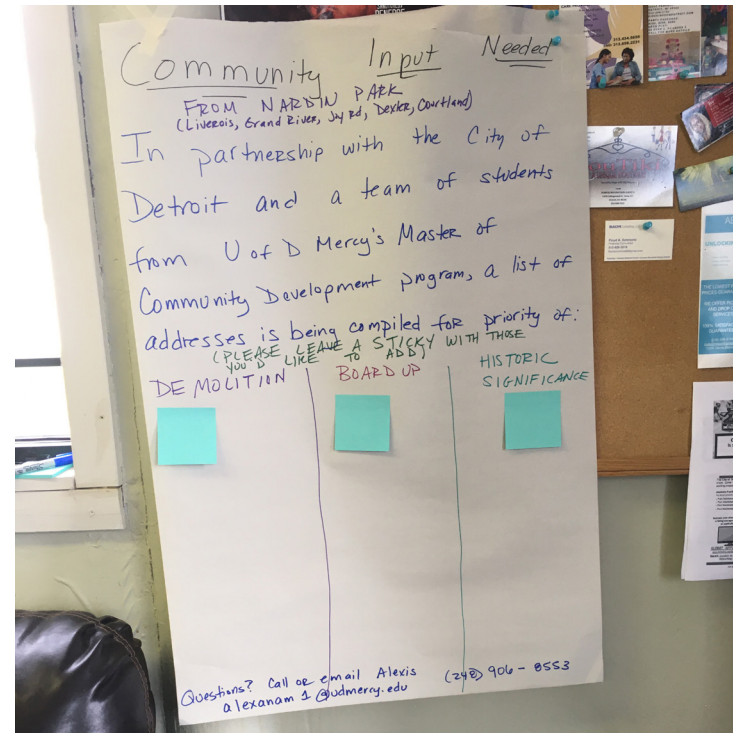 Community Input Needed
FROM NARDIN PARK
(Liverois, Grand River, Joy Rd, Dexter, Courtland)
In partnership with the City of
Detroit and a team of students
from U of D Mercy's Master of
Community Development program, a list of
addresses is being compiled for priority of:
(PLEASE LEAVE A STICKY WITH THOSE
YOU'D LIKE TO ADD)
DEMOLITION
BOARD UP
HISTORIC
SIGNIFICANCE
Questions? Call or email Alexis (248) 906-8553
alexanam1@udmercy.edu